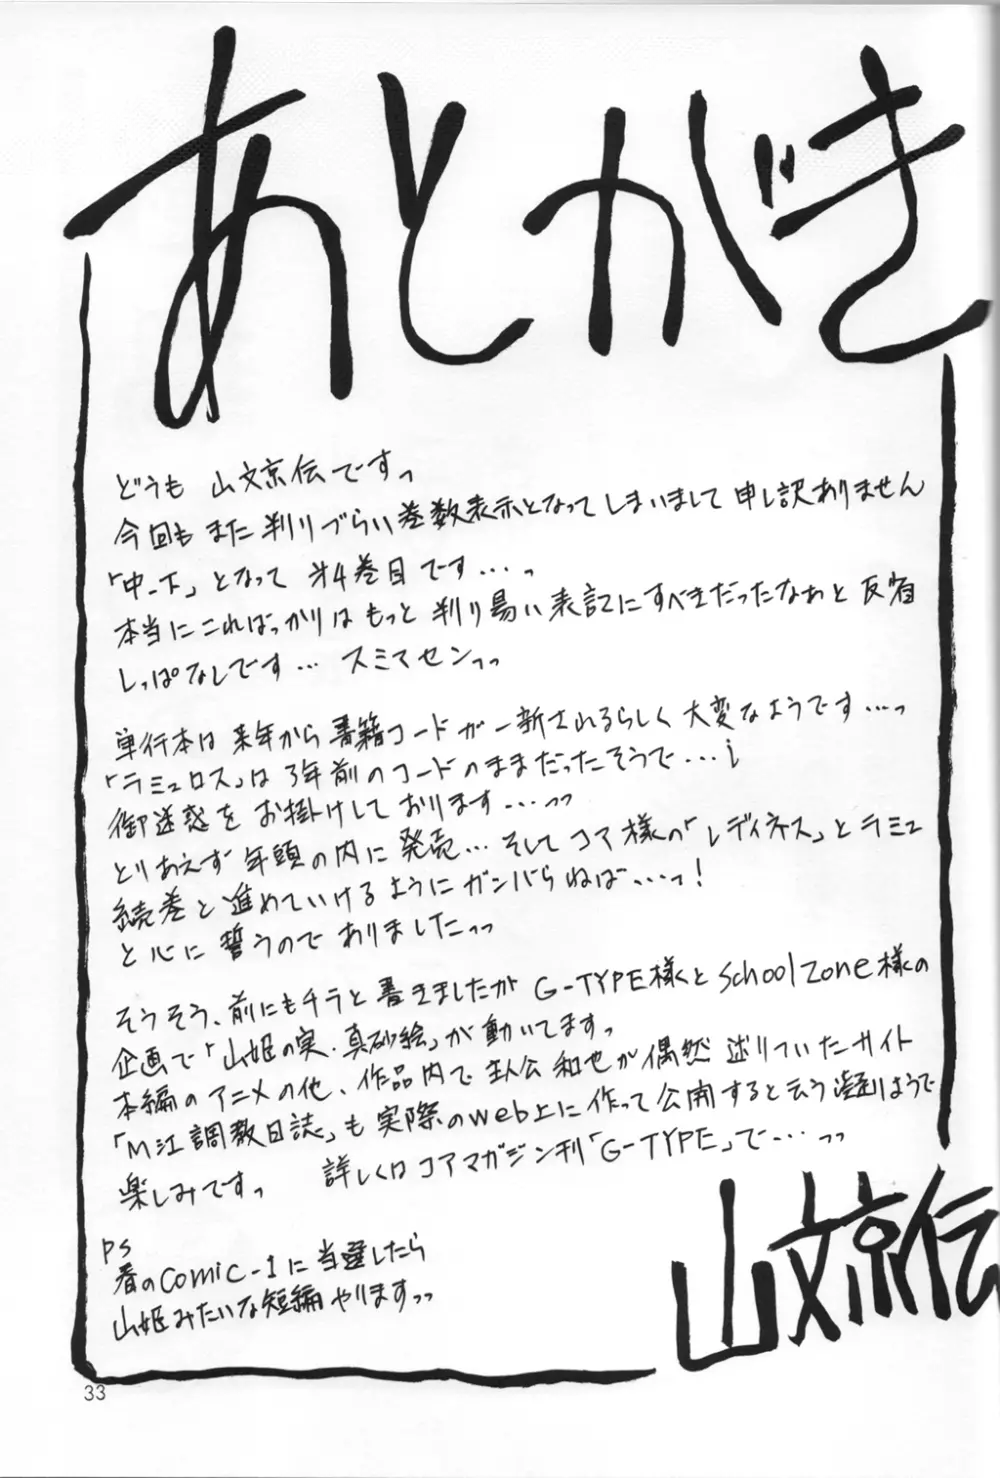 あとがき
どうも 山文京伝ですっ
今回も また 判りづらい巻数表示となってしまいまして 申し訳ありません
「中-下」となって 第4巻目です…っ
本当にこればっかりは もっと 判り易い 表記にすべきだったなぁと 反省
しっぱなしです… スミマセンっっ
単行本は 来年から 書籍コードが一新されるらしく 大変なようです…っ
「ラミュロス」は 3年前のコードのままだったそうで…;
御迷惑を お掛けしております…っっ
とりあえず 年頭の内に 発売… そして コア様の「レディネス」とラミュ
続巻と 進めていけるようにガンバらねば…っ!
と心に 誓うので ありましたっっ
そうそう、前にもチラと 書きましたが G-TYPE様と School Zone様の
企画で「山姫の実・真砂絵」が 動いてますっ
本編のアニメの他、作品内で 主人公 和也が 偶然 辿りついたサイト
「M江調教日誌」も 実際のweb上に 作って 公開すると云う 凝りようで
楽しみですっ 詳しくは コアマガジン刊「G-TYPE」で…っっ
PS
春のComic-1に当選したら
山姫みたいな短編 やりますっっ
山文京伝
33